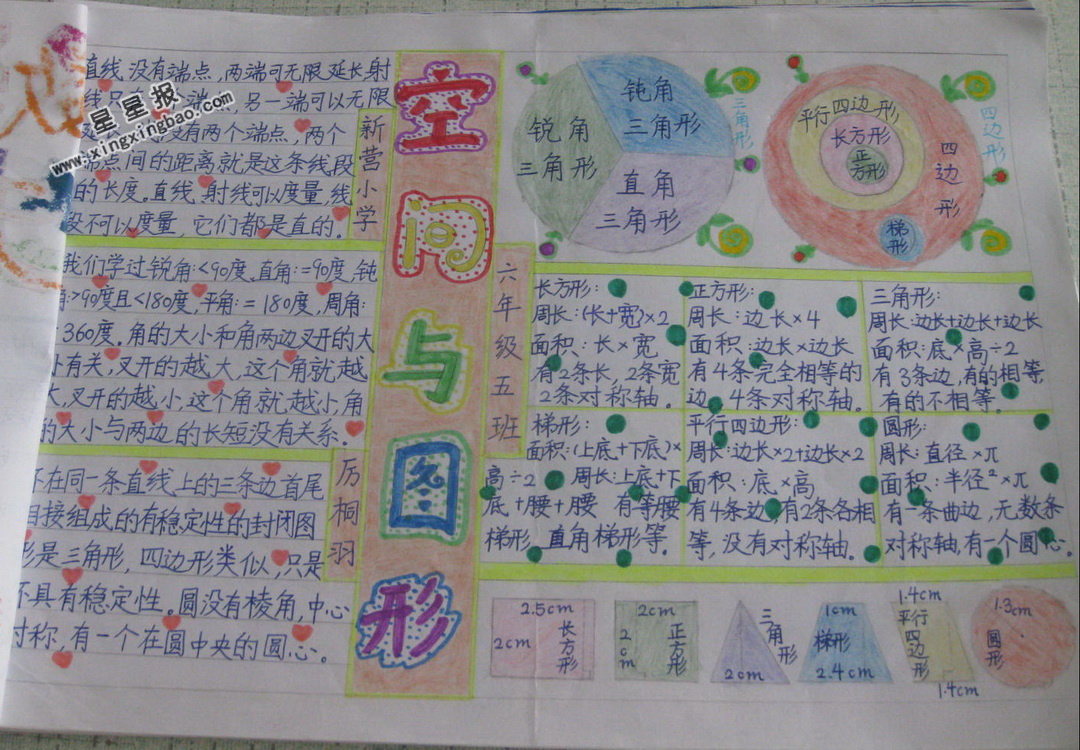 星星报
www.xingxingbao.com
直线没有端点，两端可无限延长射
端，另一端可以无限
有两个端点，两个
端点间的距离就是这条线段
的长度。直线、射线可以度量，线
段不可以度量，它们都是直的。
我们学过锐角:<90度,直角:=90度,钝
角:>90度且<180度,平角:=180度,周角:
360度。角的大小和角两边叉开的大
有关,叉开的越大,这个角就越
大,叉开的越小,这个角就越小,角
的大小与两边的长短没有关系。
不在同一条直线上的三条边首尾
相接组成的有稳定性的封闭图
形是三角形,四边形类似,只是
不具有稳定性。圆没有棱角,中心
对称,有一个在圆中央的圆心。
新营小学
空间与图形
六年级五班
厉桐羽
钝角
三角形
锐角
三角形
直角
三角形
三角形
平行四边形
长方形
正
方形
四边形
梯形
四边形
长方形:
周长:(长+宽)×2
面积:长×宽
有2条长,2条宽
2条对称轴。
正方形:
周长:边长×4
面积:边长×边长
有4条完全相等的
边,4条对称轴。
三角形:
周长:边长+边长+边长
面积:底×高÷2
有3条边,有的相等,
有的不相等。
梯形:
面积:(上底+下底)×
高÷2 周长:上底+下
底+腰+腰 有等腰
梯形,直角梯形等。
平行四边形:
周长:边长×2+边长×2
面积:底×高
有4条边,有2条各相
等,没有对称轴。
圆形:
周长:直径×π
面积:半径²×π
有一条曲边,无数条
对称轴,有一个圆心。
2.5cm
2cm
长方形
2cm
2cm
正方形
三角形
2cm
1cm
梯形
2.4cm
1.4cm
平行四边形
1.4cm
1.3cm
圆形